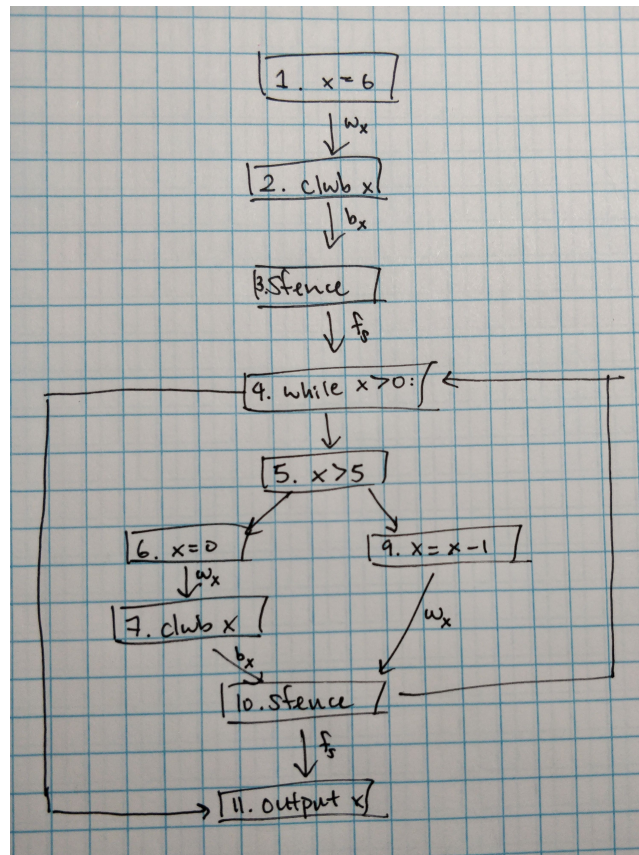 1. x = 6
wx
2. clwb x
bx
3. Sfence
fs
4. while x>0:
5. x>5
6. x=0
9. x= x-1
wx
7. clwb x
wx
bx
10. Sfence
fs
11. output x